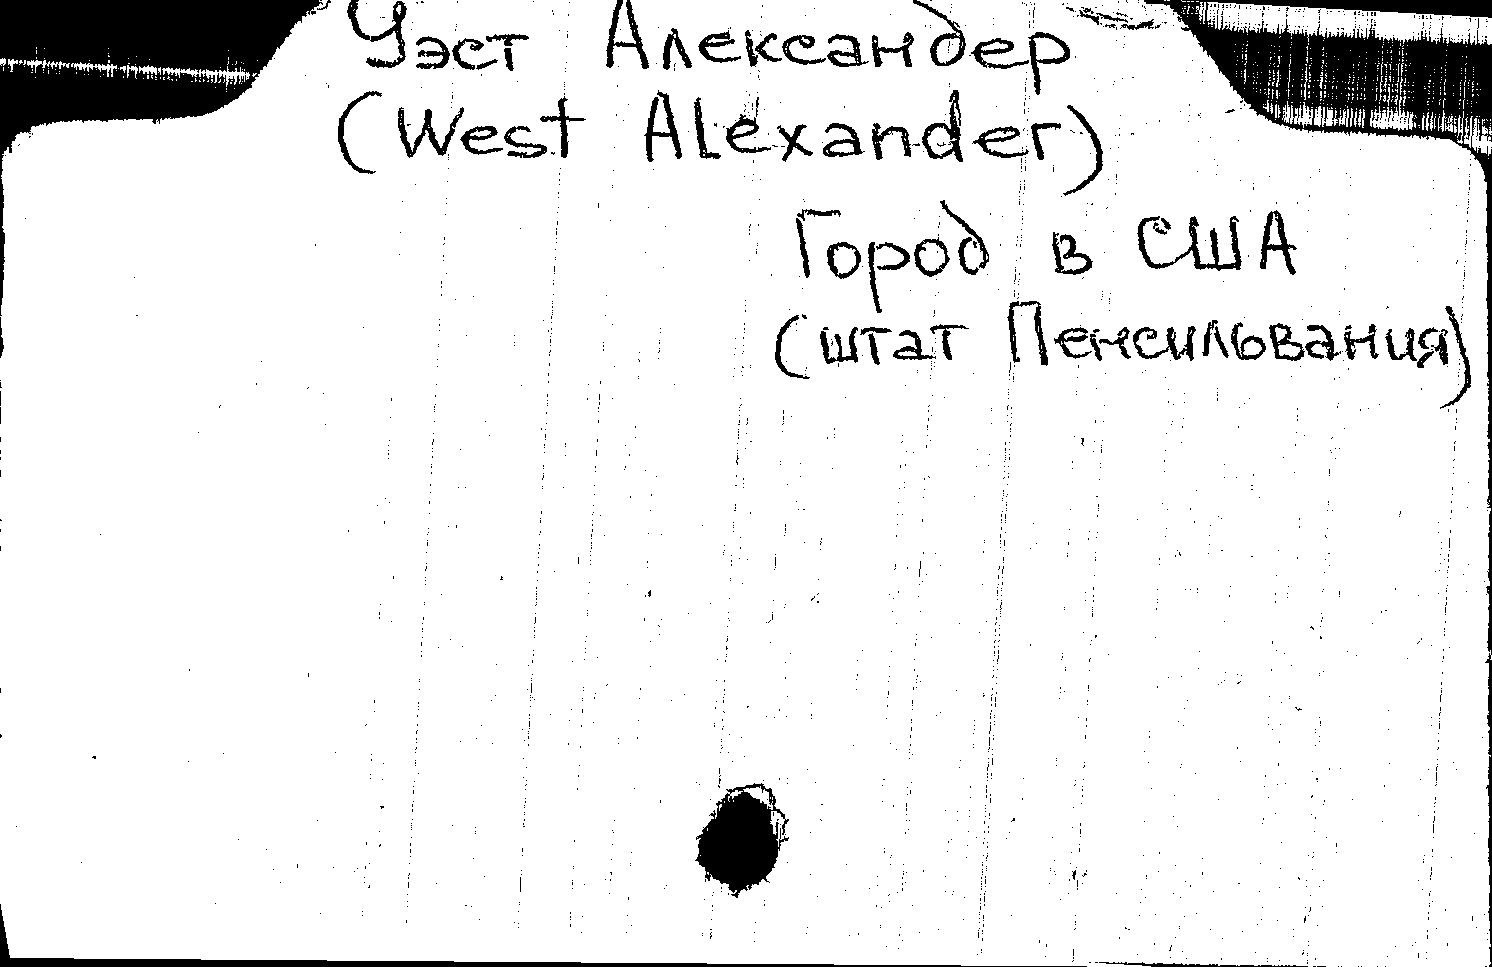 Уэст Александер
(West Alexander)
Город в США
(штат Пенсильвания)